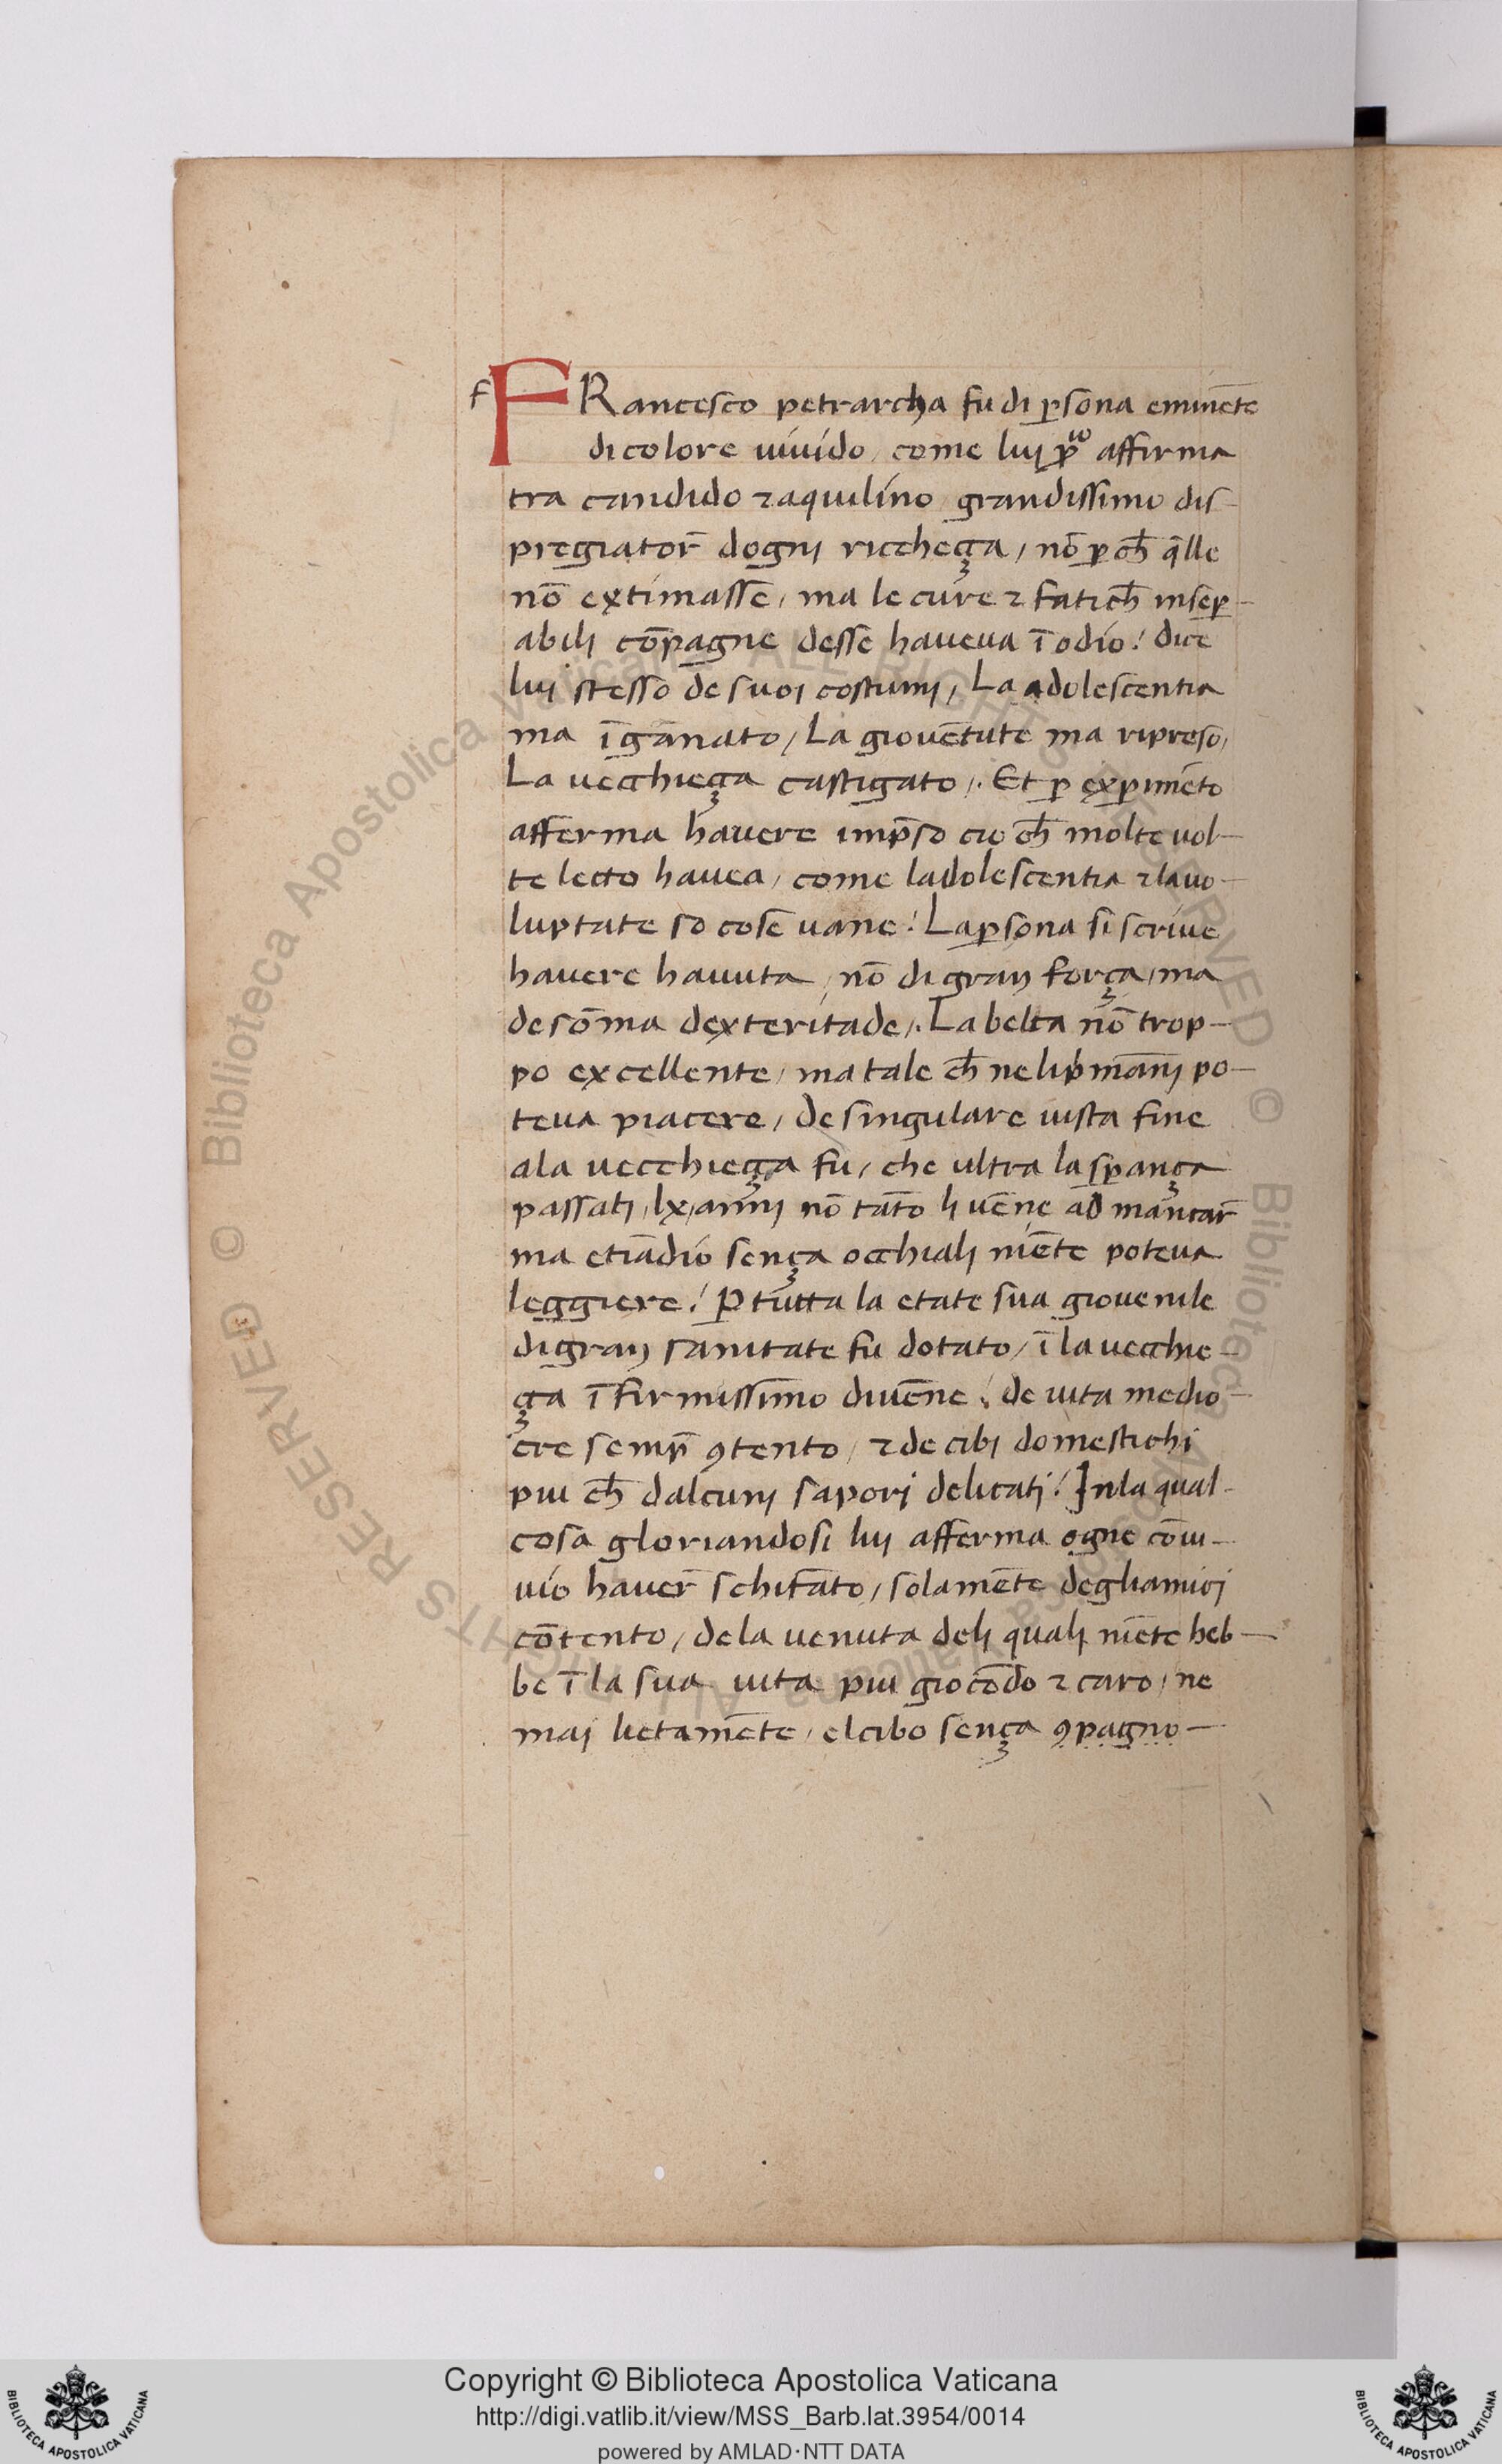 f FRancesco petrarcha fu di ꝑsona eminēte
di colore uiuido, come lui ꝓ affirma
tra candido ⁊ aquilino grandissimo dis-
pregiator̄ dogni riccheça, nō ꝑ ch̄ q̄lle
nō extimasse, ma le cure ⁊ fatich̄ inseꝑ-
abili cōpagne desse haueua ī odio! dice
lui stesso de suoi costumi, La adolescentia
ma īgānato, La giouētute ma ripreso,
La uecchieça castigato,. Et ꝑ exꝑimēto
afferma hauere imp̄so cio ch̄ molte uol-
te lecto hauea, come ladolescentia ⁊ la uo-
luptate so cose uane! La ꝑsona si scriue
hauere hauuta, nō di gran força, ma
de sōma dexteritade,. La belta nō trop-
po excellente, ma tale ch̄ ne li p̍mani po-
teua piacere, de singulare uista fine
ala uecchieça fu, che ultra la sꝑança
passati, lx, anni nō tāto li uēne ad mancar̄
ma etiādio sença occhiali niēte poteua
leggiere! ꝑ tutta la etate sua giouenile
di gran sanitate fu dotato, ī la uecchie-
ça īfirmissimo diuēne, de uita medio-
cre semp̄ ꝯtento, ⁊ de cibi domestichi
piu ch̄ dalcuni sapori delicati! Inla qual-
cosa gloriandosi lui afferma ogne cōui-
uio hauer̄ schifato, solamēte degli amici
cōtento, dela uenuta deli quali niēte heb-
be ī la sua uita piu giocōdo ⁊ caro, ne
mai lietamēte, el cibo sença ꝯpagno-
© Biblioteca Apostolica Vaticana ALL RIGHTS RESERVED
Copyright © Biblioteca Apostolica Vaticana
http://digi.vatlib.it/view/MSS_Barb.lat.3954/0014
powered by AMLAD·NTT DATA
BIBLIOTECA APOSTOLICA VATICANA
BIBLIOTECA APOSTOLICA VATICANA